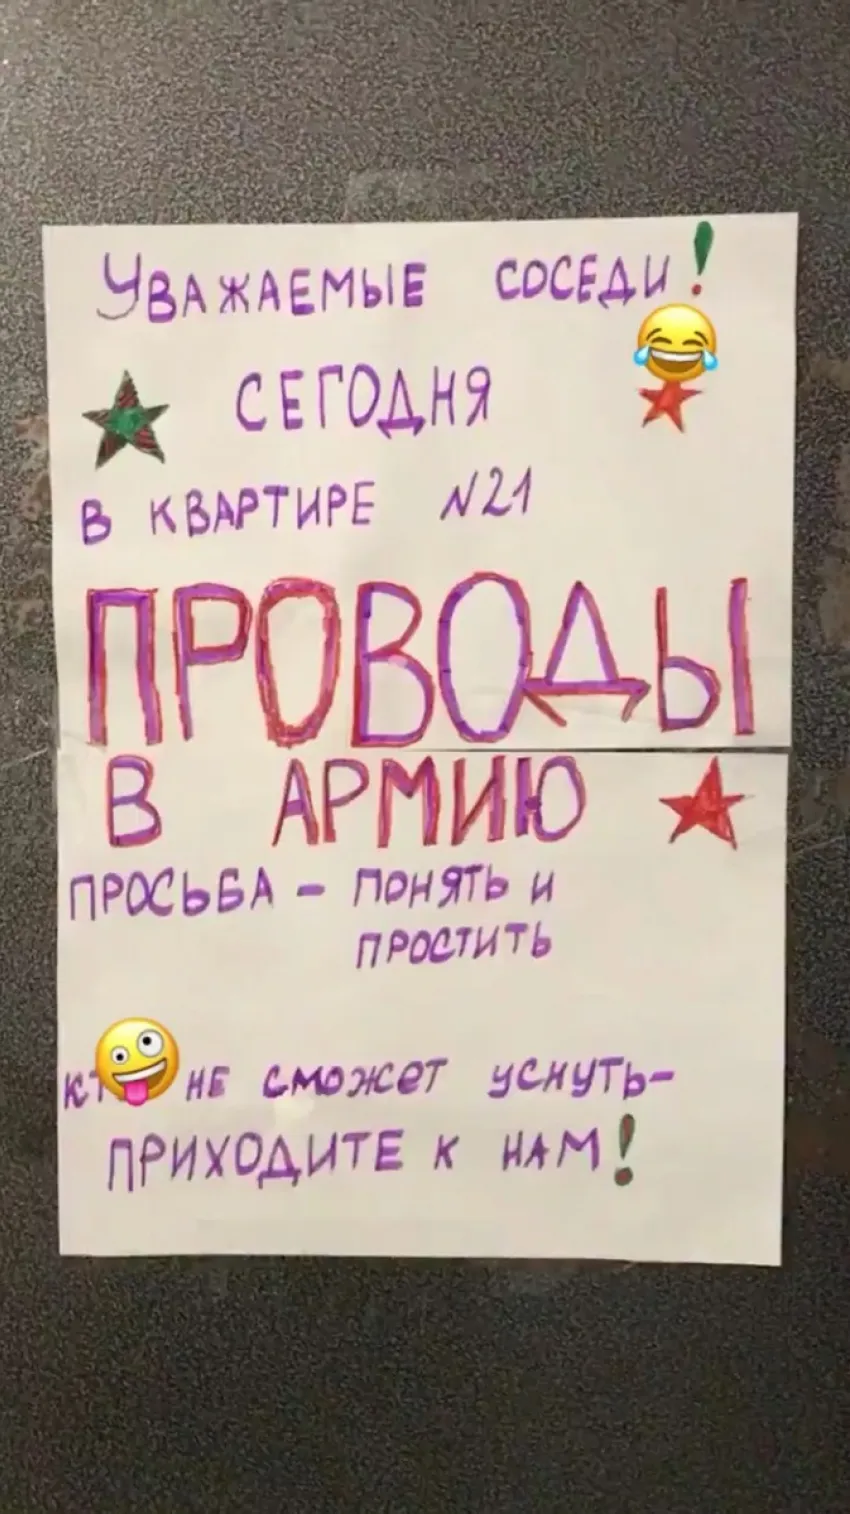 Уважаемые соседи!
СЕГОДНЯ
В КВАРТИРЕ N21
ПРОВОДЫ
В АРМИЮ
ПРОСЬБА - ПОНЯТЬ И
ПРОСТИТЬ
НЕ СМОЖЕТ УСНУТЬ-
ПРИХОДИТЕ К НАМ!